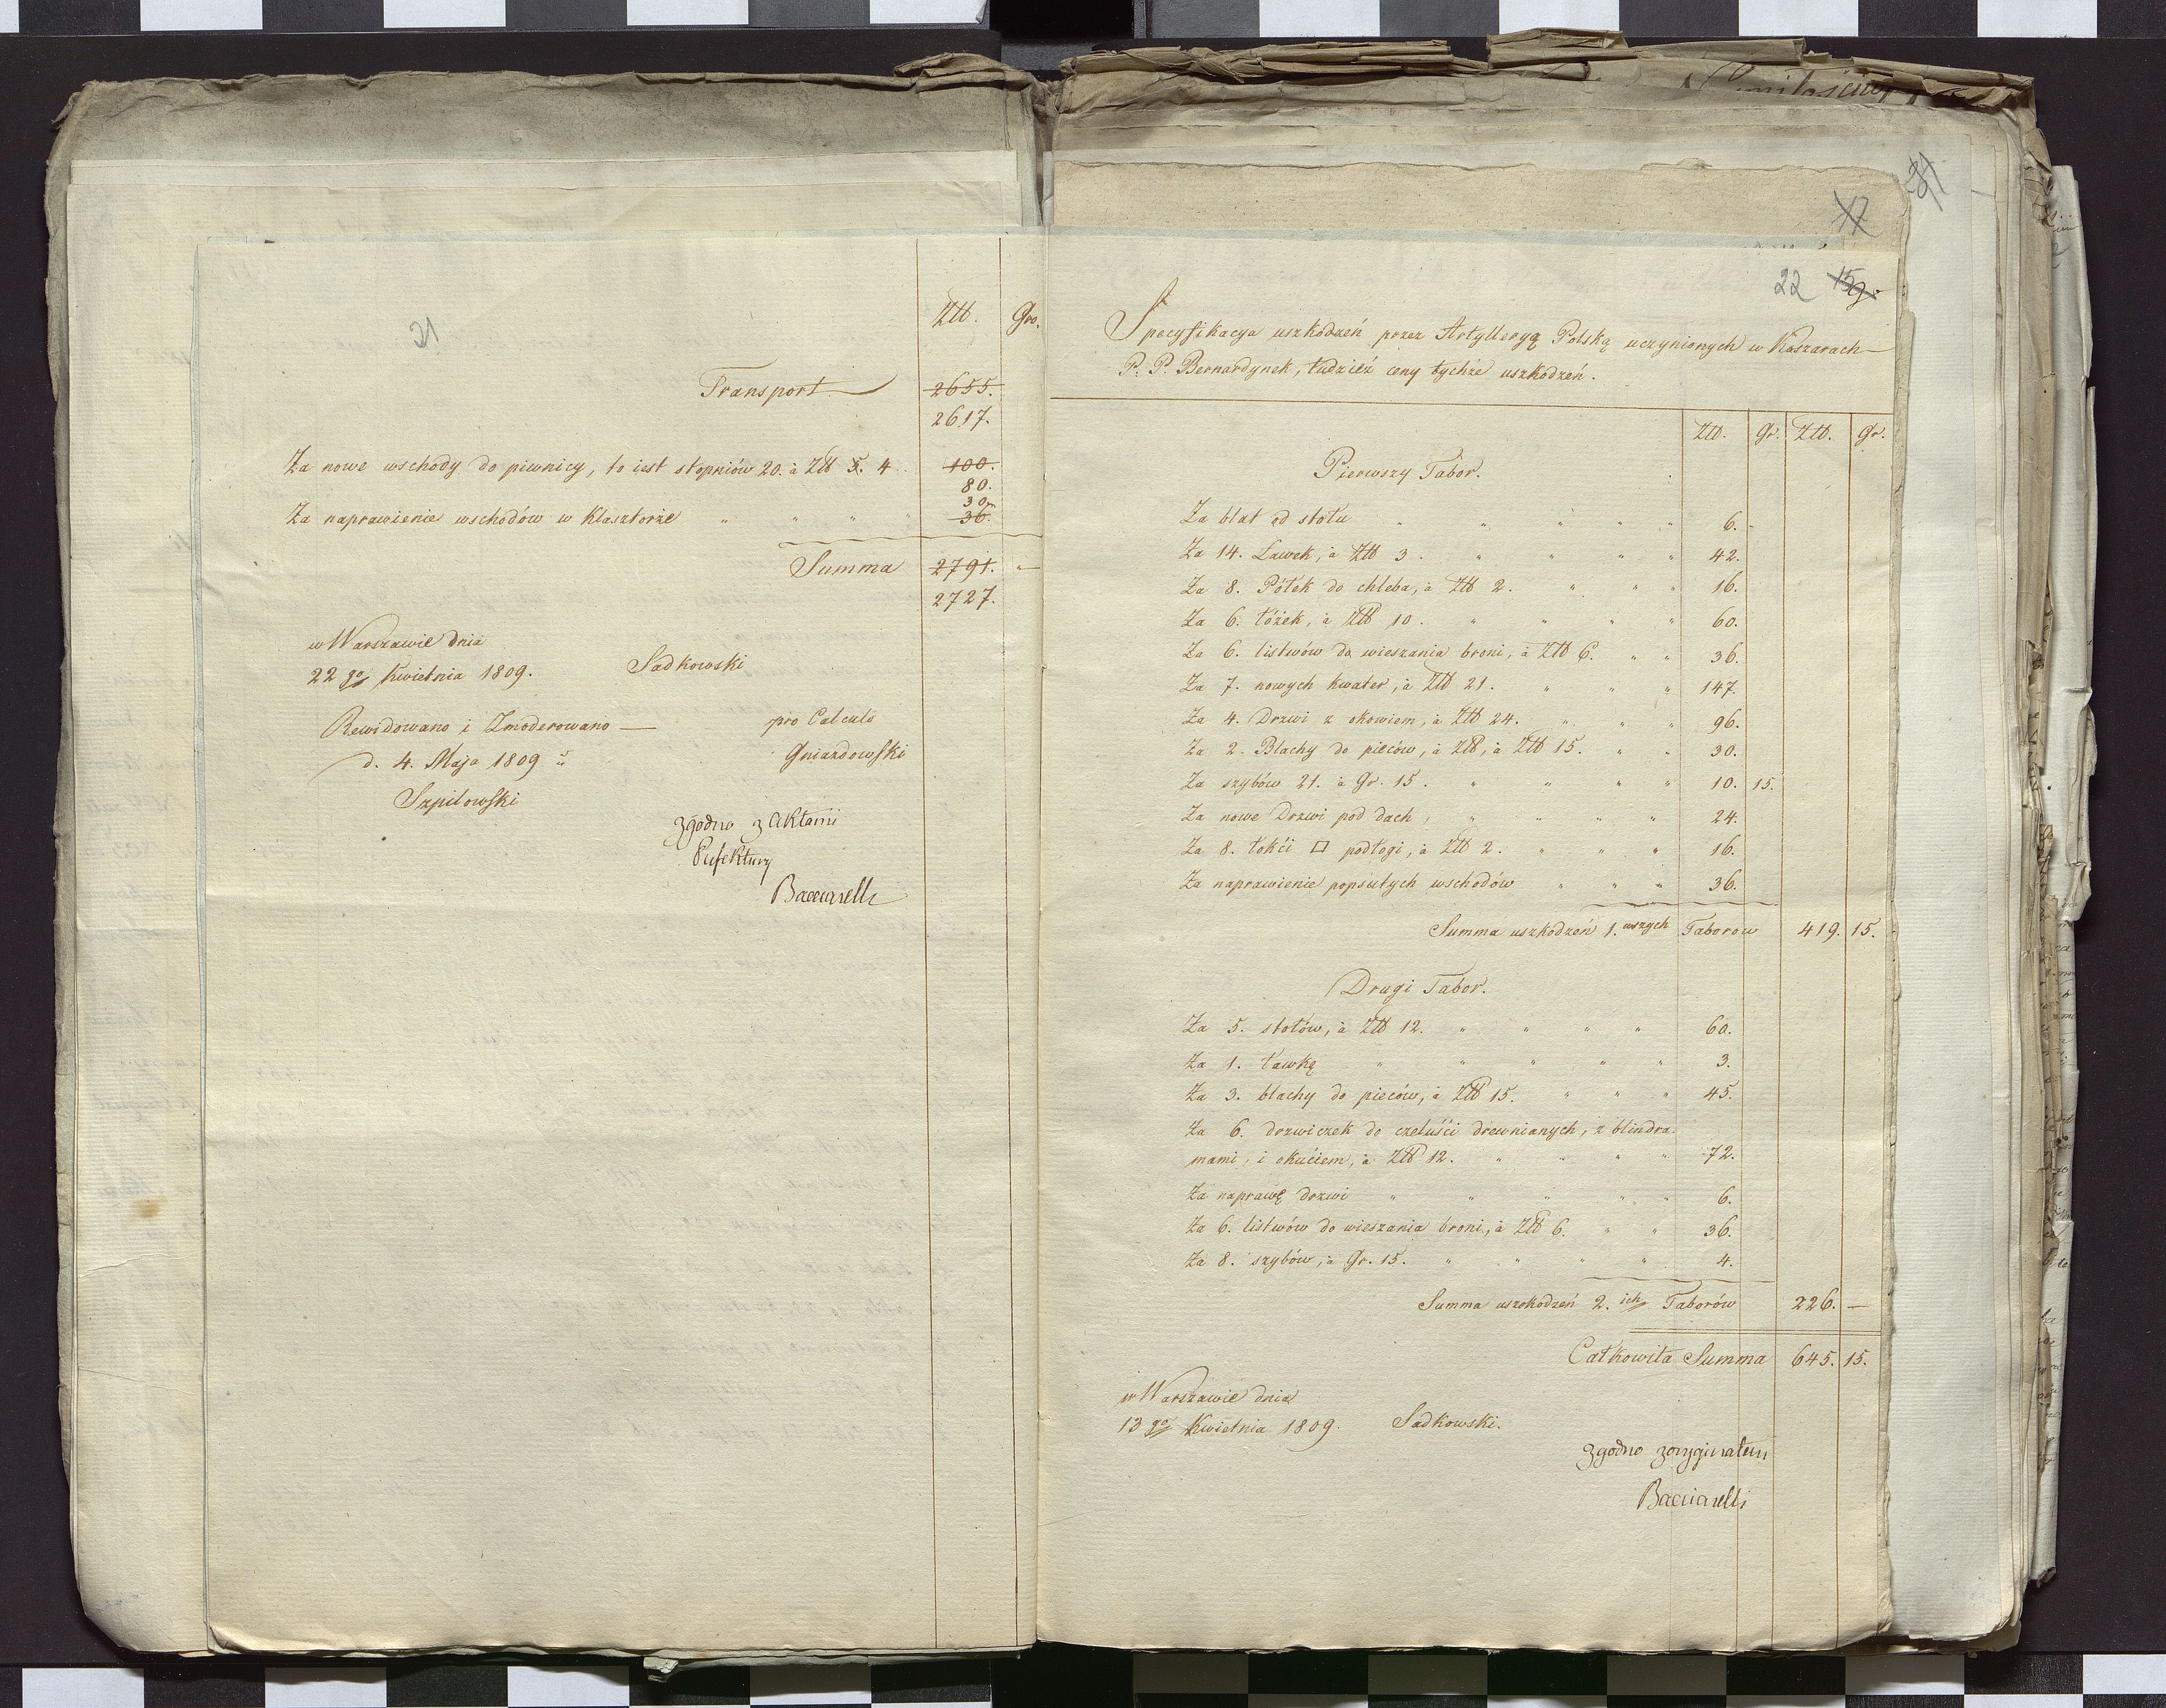 21
Ztt. Gro.
Transport 2655.
2617.
Za nowe wschody do piwnicy, to iest stopniów 20. à Ztt 5. 4 100.
80.
30
Za naprawienie wschodów w Klasztorze " " " " 36.
Summa 2791. " —
2727.
w Warszawie dnia
22 go Kwietnia 1809. Sadkowski
Rewidowano i Zmoderowano — pro Calculo
d. 4. Maja 1809 Gniazdowski
Szpilowski
zgodno z Aktami
Prefektury
Bacciarelli
17
22 15
Specyfikacya uszkodzeń przez Artylleryą Polską uczynionych w Koszarach
P. P. Bernardynek, tudzież ceny tychże uszkodzeń.
Ztt. Gr. Ztt. Gr.
Pierwszy Tabor.
Za blat od stołu " " " " " 6. -
Za 14. Ławek, à Ztt 3. " " " " 42.
Za 8. Półek do chleba, à Ztt 2. " " " 16.
Za 6. łóżek, à Ztt 10. " " " " 60.
Za 6. listwów do wieszania broni, à Ztt 6. " " 36.
Za 7. nowych kwater, à Ztt 21. " " " 147.
Za 4. Drzwi z okowiem, à Ztt 24. " " " 96.
Za 2. Blachy do pieców, à Ztt, à Ztt 15. " " 30.
Za szybów 21. à Gr. 15. " " " " 10. 15.
Za nowe Drzwi pod dach, " " " " 24.
Za 8. łokći □ podłogi, à Ztt 2. " " " 16.
Za naprawienie popsutych wschodów " " " 36.
Summa uszkodzeń 1. wszych Taborów 419. 15.
Drugi Tabor.
Za 5. stołów, à Ztt 12. " " " " 60.
Za 1. ławkę " " " " " 3.
Za 3. blachy do pieców, à Ztt 15. " " " 45.
Za 6. drzwiczek do czeluści drewnianych, z blindra-
mami, i okuciem, à Ztt 12. " " " " 72.
Za naprawę drzwi " " " " " 6.
Za 6. listwów do wieszania broni, à Ztt 6. " " 36.
Za 8. szybów, à Gr. 15. " " " " 4.
Summa uszkodzeń 2. ich Taborów 226. —
Całkowita Summa 645. 15.
w Warszawie dnia
13 go Kwietnia 1809. Sadkowski.
zgodno z oryginałem
Bacciarelli